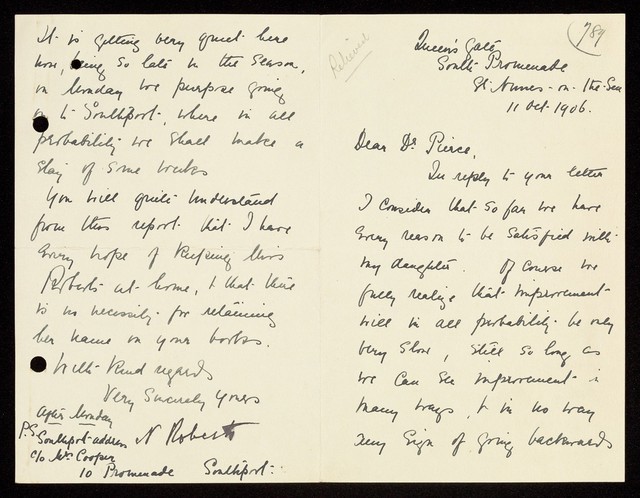 789
Queen's Gate
South Promenade
St. Annes-on-the-Sea
11 Oct. 1906.
Dear Dr. Pierce,
In reply to your letter
I consider that so far we have
every reason to be satisfied with
my daughter. Of course we
fully realize that improvement
will in all probability be only
very slow, still so long as
we can see improvement in
many ways, & in no way
any sign of going backwards
Relieved
It is getting very quiet here
now, being so late in the season,
on Monday we purpose going
on to Southport, where in all
probability we shall make a
stay of some weeks
You will quite understand
from this report that I have
every hope of keeping Miss
Roberts at home, & that there
is no necessity for retaining
her name in your books.
With kind regards
Very Sincerely Yours
N Roberts
After Monday
P.S. Southport-address
c/o Mrs Cooper
10 Promenade Southport.